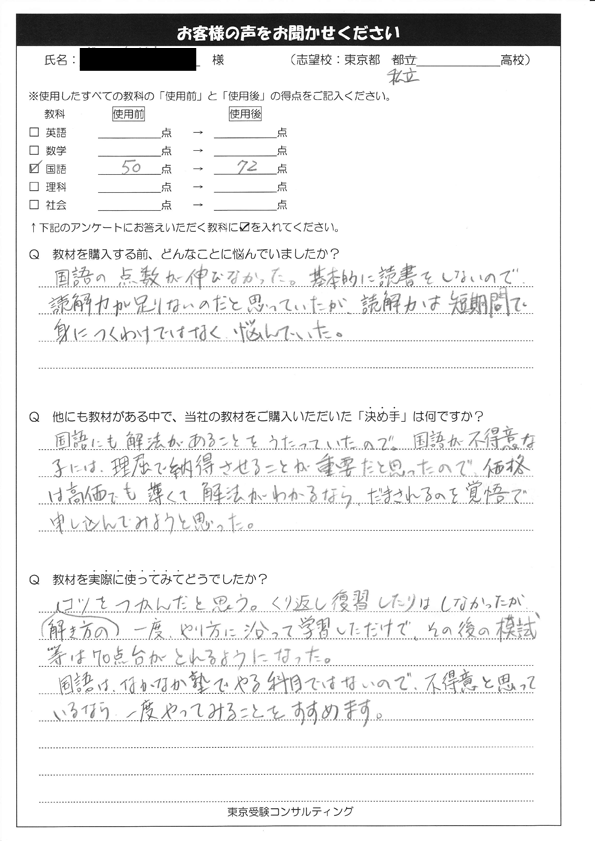 お客様の声をお聞かせください
氏名： 様 （志望校：東京都 都立 高校）
私立
※使用したすべての教科の「使用前」と「使用後」の得点をご記入ください。
教科 使用前 使用後
□ 英語 点 → 点
□ 数学 点 → 点
☑ 国語 50 点 → 72 点
□ 理科 点 → 点
□ 社会 点 → 点
↑下記のアンケートにお答えいただく教科に☑を入れてください。
Q 教材を購入する前、どんなことに悩んでいましたか？
国語の点数が伸びなかった。基本的に読書をしないので
読解力が足りないのだと思っていたが、読解力は短期間で
身につくわけではなく悩んでいた。
Q 他にも教材がある中で、当社の教材をご購入いただいた「決め手」は何ですか？
国語にも解法があることをうたっていたので。国語が不得意な
子には、理屈で納得させることが重要だと思ったので、価格
は高価でも薄くて解法がわかるなら、だまされるのを覚悟で
申し込んでみようと思った。
Q 教材を実際に使ってみてどうでしたか？
コツをつかんだと思う。くり返し復習したりはしなかったが
解き方の 一度、やり方に沿って学習しただけで、その後の模試
等は70点台がとれるようになった。
国語は、なかなか塾でやる科目ではないので、不得意と思って
いるなら 一度やってみることをすすめます。
東京受験コンサルティング